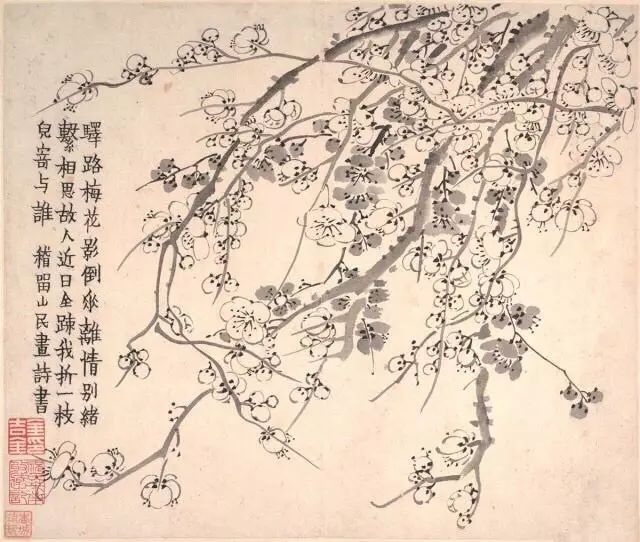 驛路梅花影倒垂離情别緒
繫相思故人近日全踈我折一枝
兒寄与誰 稽留山民畫詩書